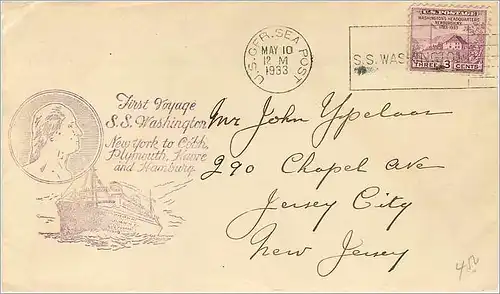 U.S. GER. SEA POST
MAY 10
12 M
1933
S.S. WASHINGTON
U.S. POSTAGE
WASHINGTON'S HEADQUARTERS
NEWBURGH, N.Y.
1783 1933
THREE 3 CENTS
First Voyage
S.S. Washington
New York to Cobh,
Plymouth, Havre
and Hamburg.
Mr John
290 Chapel Ave
Jersey City
New Jersey